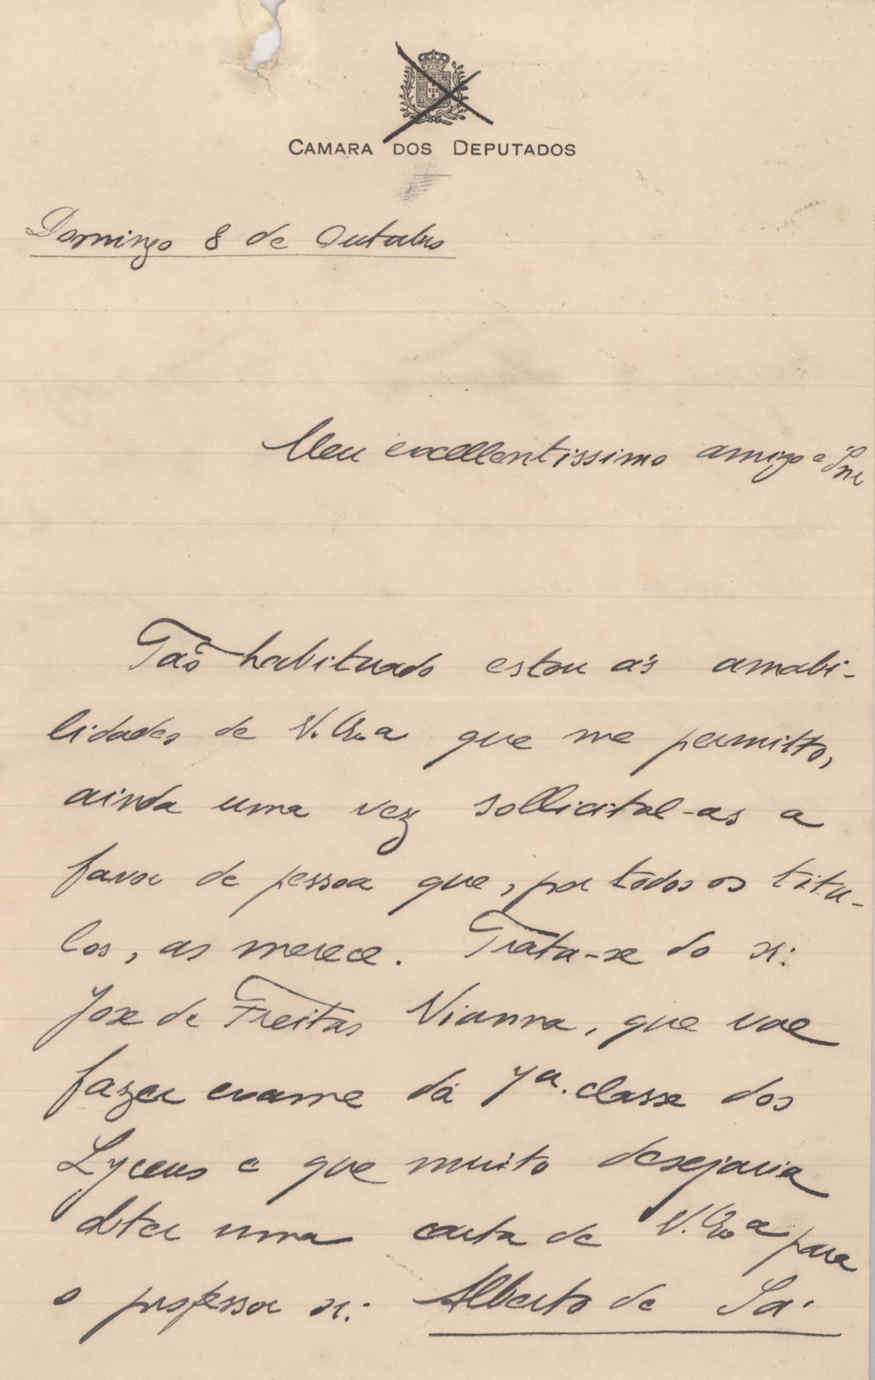 CAMARA DOS DEPUTADOS
Domingo 8 de Outubro
Meu excellentissimo amigo e Snr
Tão habituado estou ás amabi-
lidades de V. Ex.a que me permitto,
ainda uma vez sollicital-as a
favor de pessoa que, por todos os titu-
los, as merece. Trata-se do sr.
José de Freitas Vianna, que vae
fazer exame da 7a. classe dos
Lyceus e que muito desejaria
obter uma carta de V. Ex.a para
o professor sr. Alberto de Sá